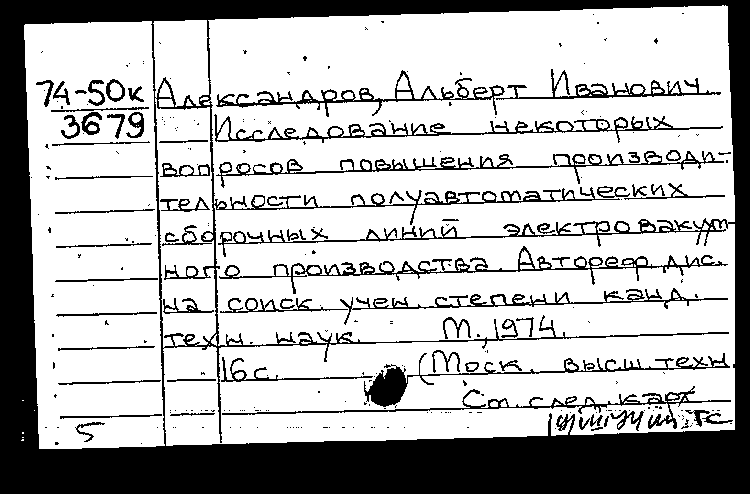 74-50к Александров, Альберт Иванович.
3679 Исследование некоторых
вопросов повышения производи-
тельности полуавтоматических
сборочных линий электровакуум-
ного производства. Автореф. дис.
на соиск. учен. степени канд.
техн. наук. М., 1974.
16 с. (Моск. высш. техн.
См. след. карт
5 ТС